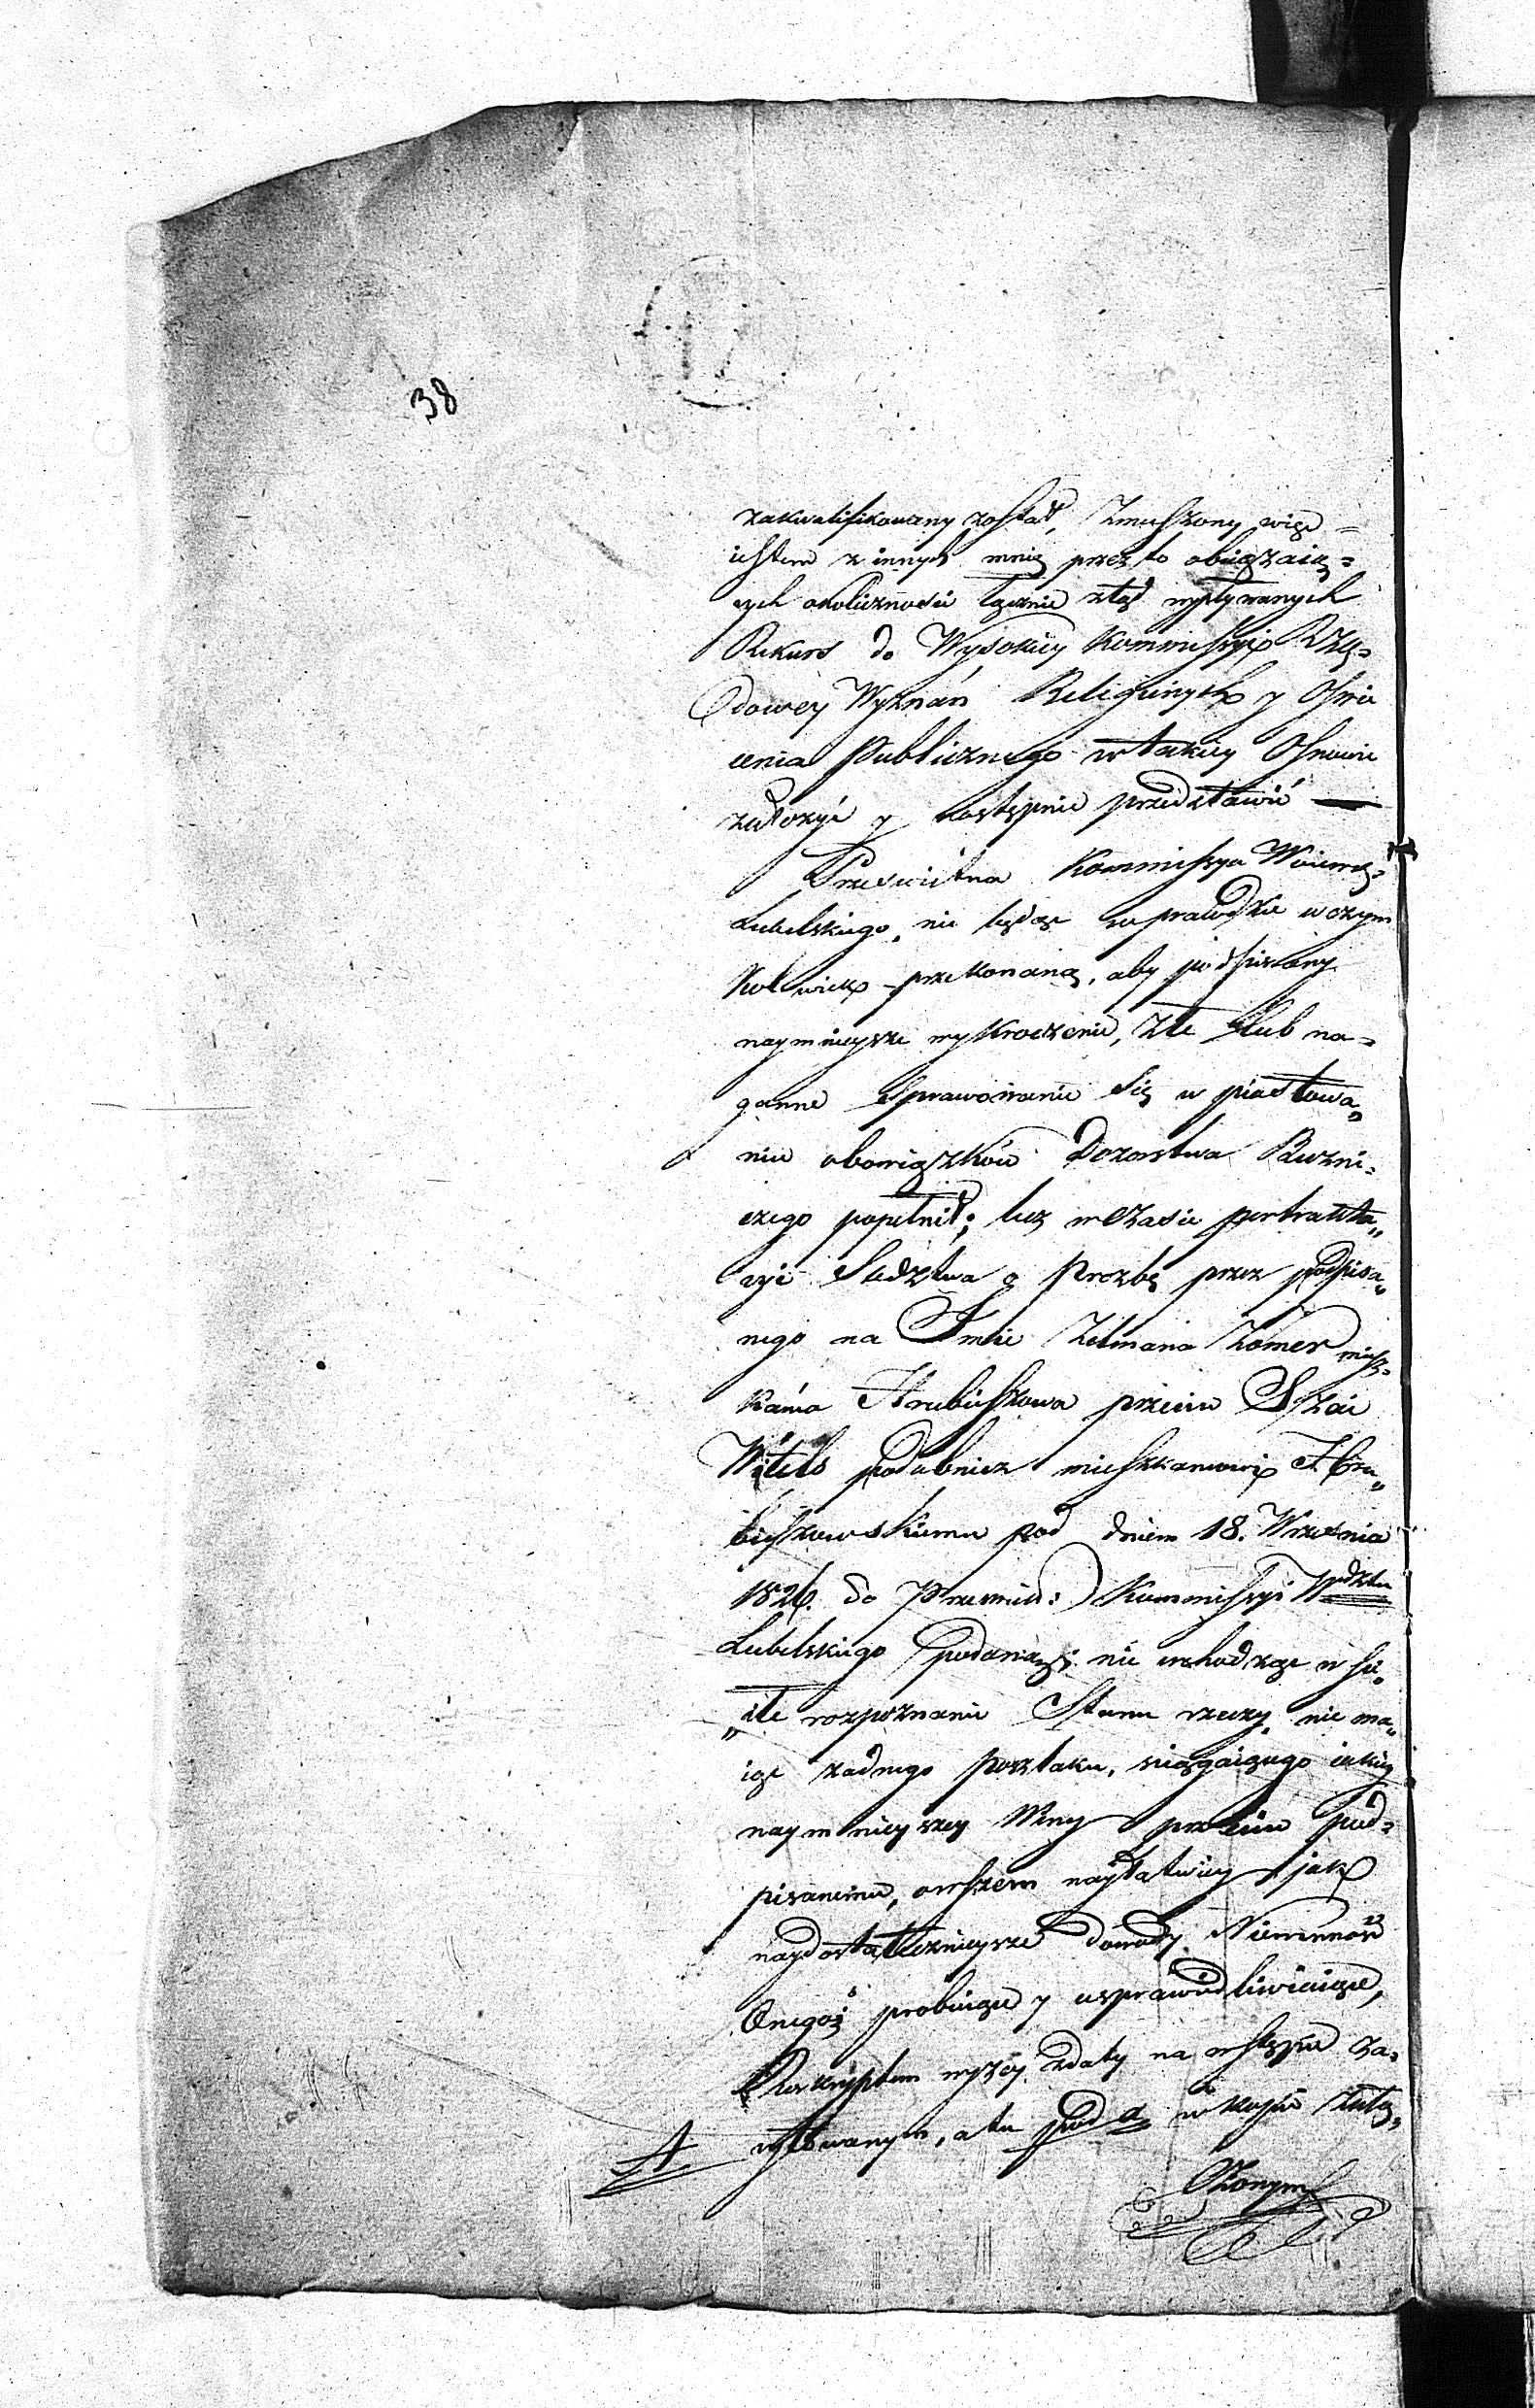 38
zakwalifikowany został, Zmuszony więc =
iestem z innych mnię przez to obciążaią=
cych okoliczności łącznie ztąd wypływanych
Rekurs do Wysokiey Kommissyi Rzą=
dowey Wyznań Religiinych y Oświe
cenia Publicznego w takiey Osnowie
założyć y następnie przedstawić —
Prześwietna Kommissya Woiewó=
Lubelskiego, nie będąc w prawdzie w czym
kolwiek przekonaną, aby podpisany
naymnieysze wykroczenie, złe lub na=
ganne sprawowanie się w piastowa„
niu obowiązków Dozorstwa Bużni=
czego popełnił; lecz w czasie pertrakta„
cyi Sledztwa o Prożbę przez podpisa„
nego na Imie Zelmana Zomer miesz=
kańca Hrubieszowa przeciw Szai
Witels podobniez mieszkancowi Hru„
bieszowskiemu pod dniem 18. Września
1826. do Przeswiet: Kommissyi Wdztwa
Lubelskiego podaną; nie wchodząc w ści„
„słe rozpoznanie Stanu rzeczy, nie ma„
iąc żadnego poszlaku, sięgaiącego iakiey
naymnieyszey Winy przeciw pod=
pisanemu, owszem nayłatwiey jak
naydostateczniejsze dowody Niewinność
Onegoż probuiące y usprawiedliwiaiące,
Reskryptem wyżey z daty na wstępie za=
A cytowanym, a tu pod a w kopii załą„
czonym